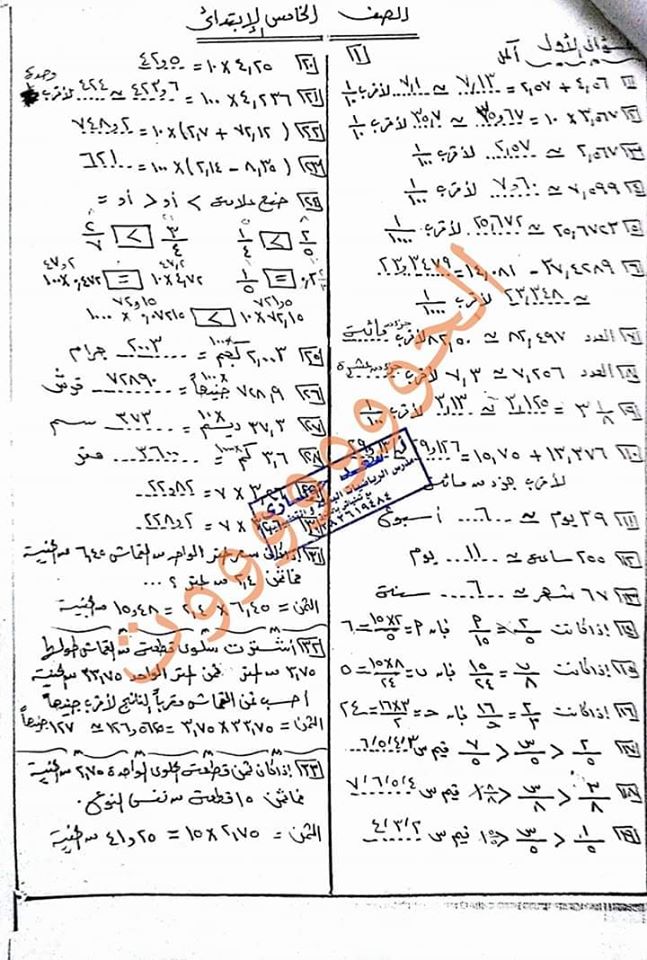 الصف الخامس الإبتدائى
السؤال الأول أكمل
[١] ٤,٥٦ + ٢,٥٧ = ٧,١٣ ≃ ٧,١ لأقرب ١/١٠
[٢] ٣,٥٦٧ × ١٠ = ٣٥,٦٧ ≃ ٣٥,٧ لأقرب ١/١٠
[٣] ٢,٥٦٧ ≃ ٢,٥٧ لأقرب ١/١٠٠
[٤] ٧,٥٩٩ ≃ ٧,٦٠ لأقرب ١/١٠٠
[٥] ٢٥,٦٧٢٣ ≃ ٢٥,٦٧٢ لأقرب ١/١٠٠٠
[٦] ٣٧,٤٢٨٩ - ١٤,٠٨١ = ٢٣,٣٤٧٩
≃ ٢٣,٣٤٨ لأقرب ١/١٠٠٠
[٧] العدد ٨٢,٤٩٧ ≃ ٨٢,٥٠ لأقرب جزء من مائة
[٨] العدد ٧,٢٥٦ ≃ ٧,٣ لأقرب جزء من عشرة
[٩] ٣ ١/٨ = ٣,١٢٥ ≃ ٣,١٣ لأقرب ١/١٠٠
[١٠] ١٣,٣٧٦ + ١٥,٧٥ = ٢٩,١٢٦ ≃ ٢٩,١٣
لأقرب جزء من مائة
[١١] ٣٩ يوم ≃ ٦ أسبوع
[١٢] ٢٥٥ ساعة ≃ ١١ يوم
[١٣] ٦٧ شهر ≃ ٦ سنة
[١٤] إذا كانت ٢/٥ = م/١٥ فإن م = ١٥×٢/٥ = ٦
[١٥] إذا كانت ب/٨ = ١٥/٢٤ فإن ب = ١٥×٨/٢٤ = ٥
[١٦] إذا كانت ٢/٣ = ١٦/حـ فإن حـ = ١٦×٣/٢ = ٢٤
[١٧] ٢/٥ < س/٥ < ٧/٥ قيم س ٣،٤،٥،٦
[١٨] ٣/٨ < س/٨ < قيم س ٤،٥،٦،٧
[١٩] ١/٥ < س/٥ < قيم س ٢،٣،٤
[٢٠] ٤,٢٥ × ١٠ = ٤٢,٥
[٢١] ٤,٢٣٦ × ١٠٠ = ٤٢٣,٦ ≃ ٤٢٤ لأقرب وحدة
[٢٢] (٧٢,١٢ + ٢,٧) × ١٠ = ٧٤٨,٢
[٢٣] (٨,٣٥ - ٢,١٤) × ١٠٠ = ٦٢١
[٢٤] ضع علامة > أو < أو =
٢/٥ > ١/٤ ٣/٤ > ٢/٧
= ١/٥ ٤,٧٢ × ١٠ = ٠,٤٧٢ × ١٠٠
٧٢,١٥ × ١٠ > ٠,٧٢١٥ × ١٠٠٠
[٢٥] ٢,٠٠٣ كجم = ٢٠٠٣ جرام
[٢٦] ٧٢٨,٩ جنيهاً = ٧٢٨٩٠ قرش
[٢٧] ٣٧,٣ ديسم = ٣٧٣ سم
[٢٨] ٣,٦ كم = ٣٦٠٠ متر
× ٧ = ٢٢,٨٢
× ٧ = ٢٢,٨٢
[٣١] إذا كان سعر المتر الواحد من القماش ٦,٤٥ من الجنيه
فما ثمن ٢,٤ من المتر ؟ ...
الثمن = ٦,٤٥ × ٢,٤ = ١٥,٤٨ من الجنيه
[٣٢] اشترت سلوى قطعة من القماش طولها
٣,٧٥ من المتر ثمن المتر الواحد ٣٣,٧٥ من الجنيه
أحسب ثمن القماش مقرباً الناتج لأقرب جنيهاً
الثمن = ٣٣,٧٥ × ٣,٧٥ = ١٢٦,٥٦٢٥ ≃ ١٢٧ جنيهاً
[٣٣] إذا كان ثمن قطعة الحلوى الواحدة ٢,٧٥ من الجنيه
فما ثمن ١٥ قطعة من نفس النوع.
الثمن = ٢,٧٥ × ١٥ = ٤١,٢٥ من الجنيه